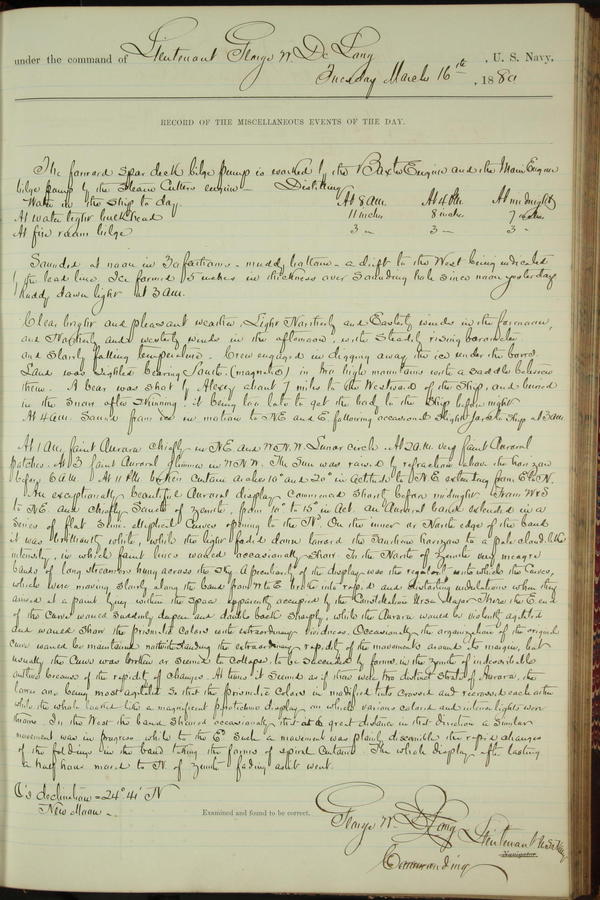 under the command of Lieutenant George W. De Long , U. S. Navy,
Tuesday March 16th , 1880
RECORD OF THE MISCELLANEOUS EVENTS OF THE DAY.
The forward spar deck bilge pump is worked by the Baxter Engine and the Main Engine
bilge pump by the Steam Cutters engine - Distilling
Water in the Ship to day At 8 AM. At 4 PM At midnight
At water tight bulkhead 11 inches 8 inches 7 inches
At fire room bilge 3 - 3 - 3 -
Sounded at noon in 32 fathoms - muddy bottom - a drift to the West being indicated
by the lead line. Ice formed 5 inches in thickness over Sounding hole since noon yesterday
Ruddy dawn light at 3 AM.
Clear bright and pleasant weather, Light Northerly and Easterly winds in the forenoon,
and Northerly and westerly winds in the afternoon, with Steadily rising barometer
and Slowly falling temperature. Crew engaged in digging away the ice under the bows.
Land was sighted bearing South (magnetic) in two high mountains with a saddle between
them. A bear was shot by Alexey about 7 miles to the Westward of the Ship, and buried
in the snow after skinning; it being too late to get the body to the Ship before night
At 4 AM. Sound from ice in motion to NE and E. following occasional slight jars to Ship at 3 AM.
At 1 AM, faint Aurora chiefly in NE and WNW. Lunar circle. At 2 AM. very faint Auroral
patches. At 3 faint Auroral glimmer in WNW. The Sun was raised by refraction above the horizon
before 6 AM. At 11 PM broken Curtain arches 10° and 20° in altitude to N.E. extending from E to N.
An exceptionally beautiful Auroral display commenced shortly before midnight from WNW
to NE and chiefly South of zenith, from 10° to 15° in Alt. An Auroral band extended in a
Series of flat Semi-elliptical Curves opening to the N. On the inner or North edge of the band
it was brilliantly white, while the light faded down toward the Southern horizon to a pale cloud-like
intensity, in which faint lines waved occasionally Show. In the North of zenith very meagre
bands of long streamers hung across the sky. A peculiarity of the display was the regularity with which the Curves,
which were moving slowly along the band from W to E broke into rapid and startling undulations when they
arrived at a point lying within the space apparently occupied by the Constellation Ursa Major. There the E. end
of the Curve would suddenly deepen and double back sharply, while the Aurora would be violently agitated
and would Show the prismatic Colors with extraordinary vividness. Occasionally the organization of the original
Curve would be maintained notwithstanding the extraordinary rapidity of the movements around its margins, but
usually the Curve was broken or seemed to collapse, to be succeeded by forms in the zenith of indescribable
outline because of the rapidity of changes. At times it seemed as if there were two distinct Strata of Aurora, the
lower one being most agitated so that the prismatic Colors in modified tints crossed and recrossed each other
while the whole looked like a magnificent pyrotechnic display on which various colored and intense lights were
thrown. In the West the band Showed occasionally that at a great distance in that direction a Similar
movement was in progress while to the E. Such a movement was plainly discernible the rapid changes
of the foldings in the band taking the forms of spiral Curtains. The whole display after lasting
a half hour moved to N. of zenith fading as it went.
☾'s declination = 24° 41' N
New Moon -
Examined and found to be correct.
George W. De Long Lieutenant U.S. Navy
Navigator.
Commanding